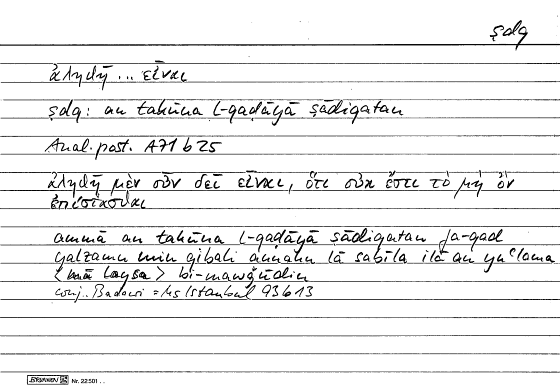 ṣdq
ἀληθῆ ... εἶναι
ṣdq: an takūna l-qaḍāyā ṣādiqatan
Anal. post. A 71 b 25
ἀληθῆ μὲν οὖν δεῖ εἶναι, ὅτι οὐκ ἔστι τὸ μὴ ὂν
ἐπίστασθαι
ammā an takūna l-qaḍāyā ṣādiqatan fa-qad
yalzamu min qibali annahū lā sabīla ilā an yuʿlama
<mā laysa> bi-mawǧūdin
conj. Badawi = Ms Istanbul 93b13
BRUNNEN Nr. 22501